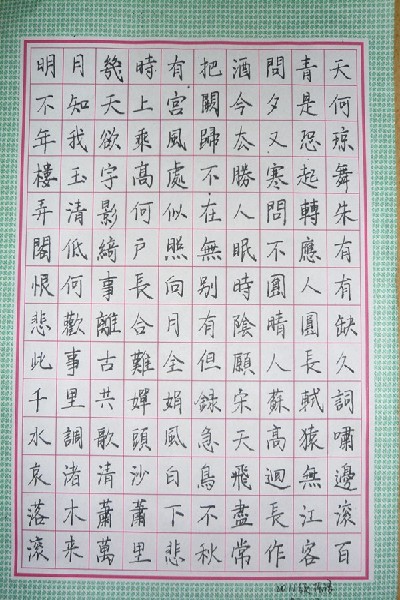 明月幾時有把酒問青天
不知天上宮闕今夕是何
年我欲乘風歸厺又恐琼
樓玉宇高處不勝寒起舞
弄清影何似在人問轉朱
閣低綺戶照無眠不應有
恨何事長向别時圓人有
悲歡離合月有陰晴圓缺
此事古難全但願人長久
千里共嬋娟録宋蘇軾詞
水調歌頭風急天高猿嘯
哀渚清沙白鳥飛迴無邊
落木蕭蕭下不盡長江滚
滚来萬里悲秋常作客百